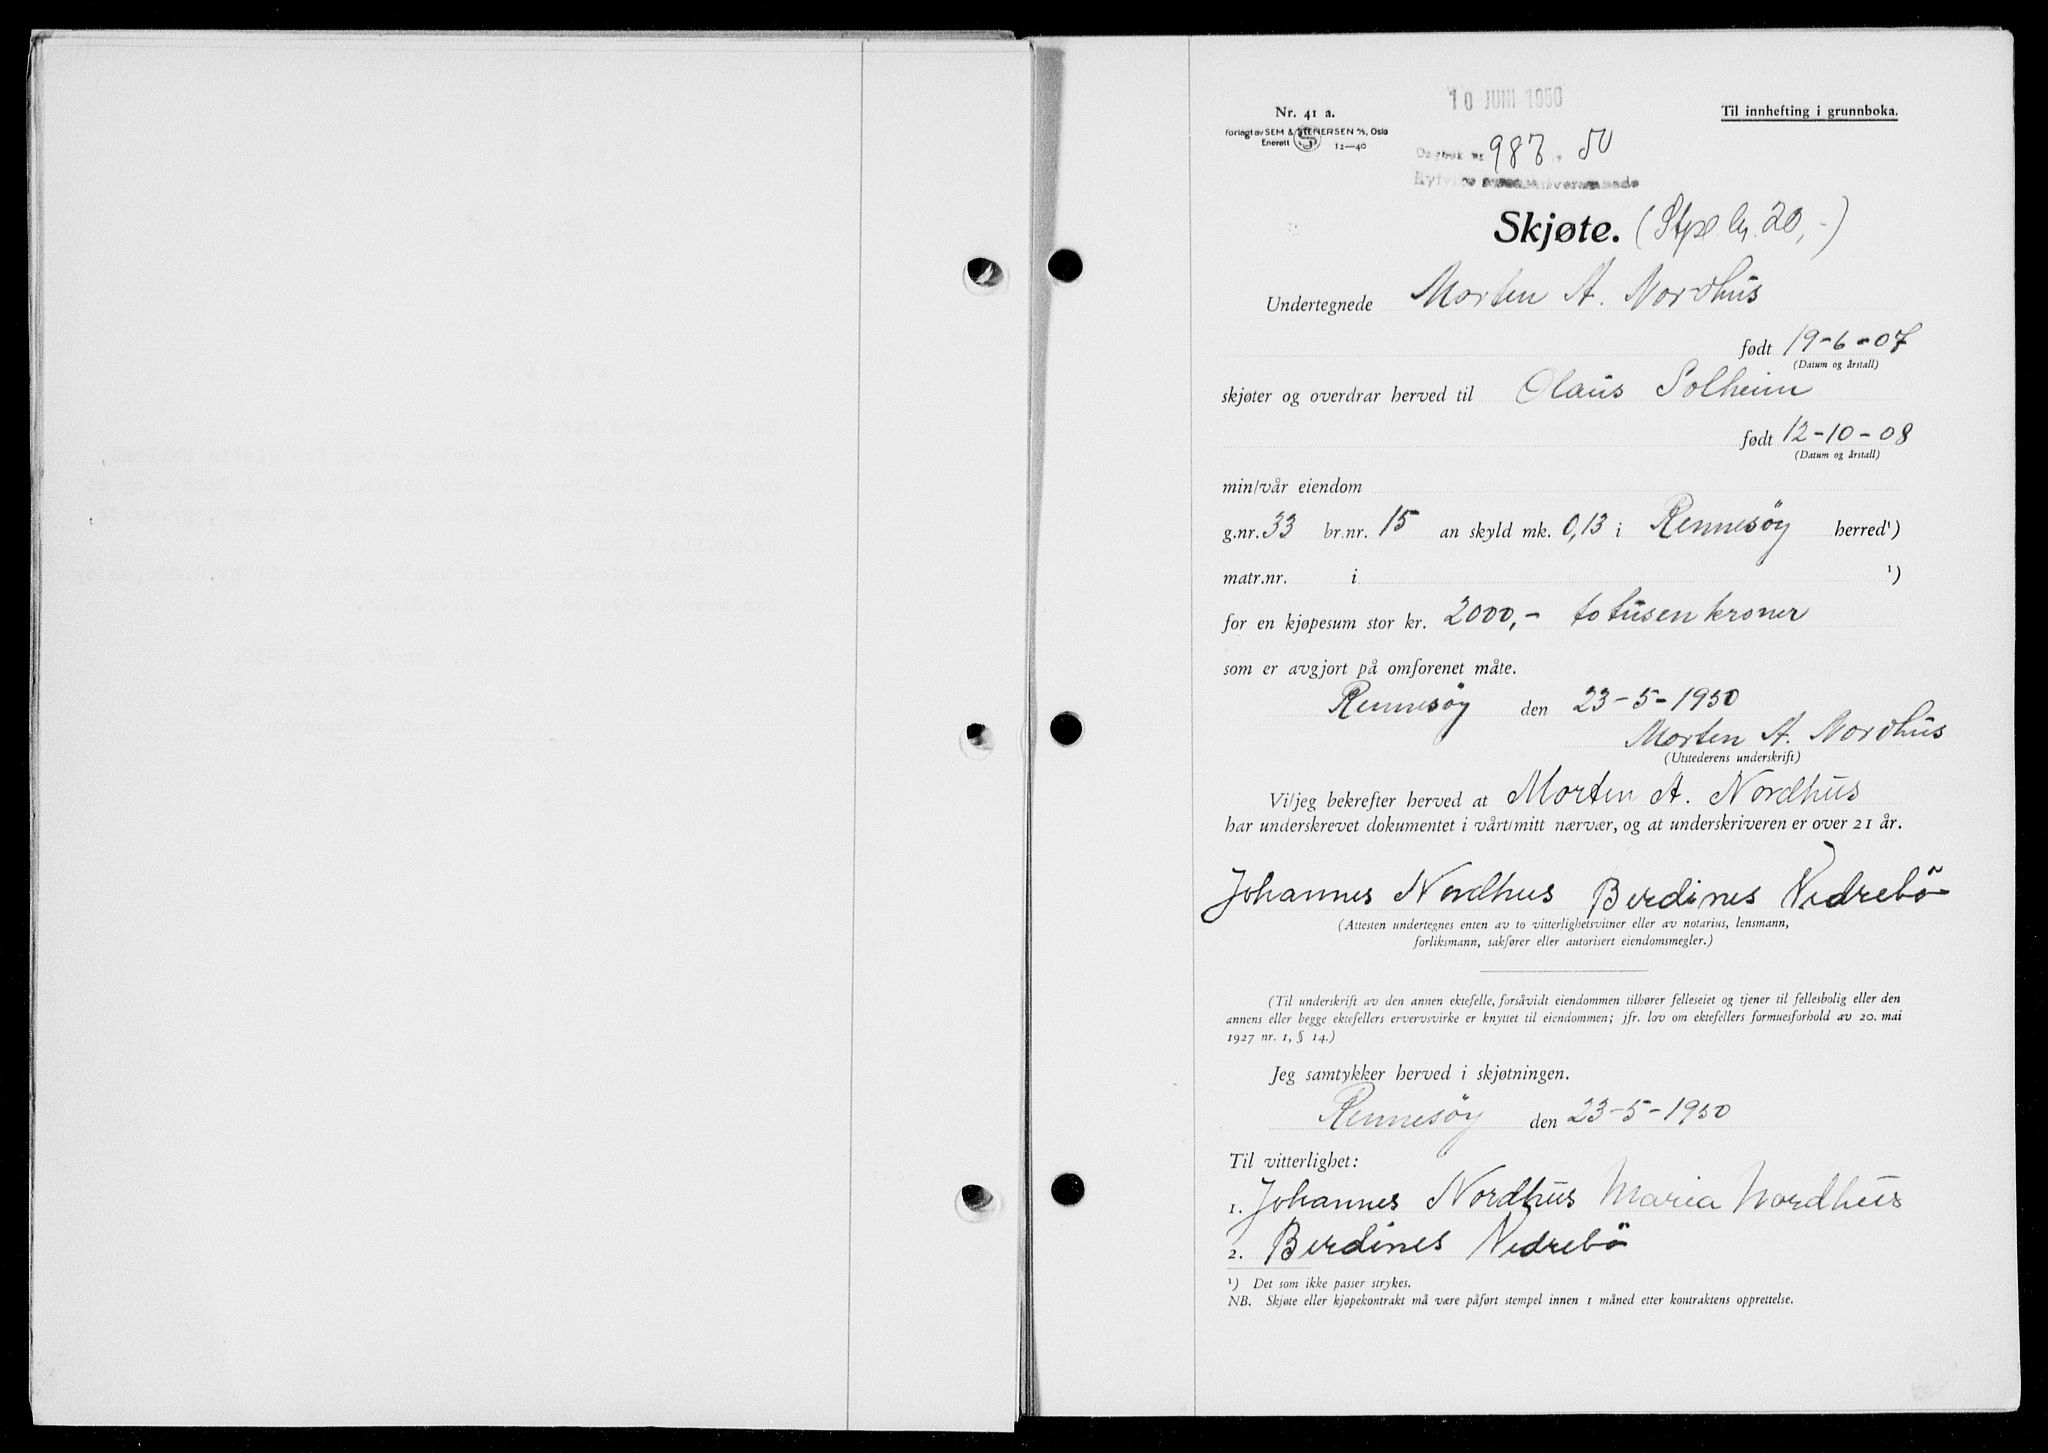 Nr. 41 a.
Forlagt av SEM & STENERSEN A/S, Oslo
Enerett S 12—40
10 JUNI 1950
Til innhefting i grunnboka.
Dagbok nr. 987. 50
Skjøte. (Stpl. kr. 20,-)
Undertegnede Morten A. Nordhus
født 19-6-07
(Datum og årstall)
skjøter og overdrar herved til Olaus Solheim
født 12-10-08
(Datum og årstall)
min/vår eiendom
g.nr. 33 br.nr. 15 an skyld mk. 0,13 i Rennesöy herred¹)
matr.nr. i ¹)
for en kjøpesum stor kr. 2000,- totusen kroner
som er avgjort på omforenet måte.
Rennesöy den 23-5-1950
Morten A. Nordhus
(Utstederens underskrift)
Vi/jeg bekrefter herved at Morten A. Nordhus
har underskrevet dokumentet i vårt/mitt nærvær, og at underskriveren er over 21 år.
Johannes Nordhus Berdines Nedrebö
(Attesten undertegnes enten av to vitterlighetsvitner eller av notarius, lensmann,
forliksmann, sakfører eller autorisert eiendomsmegler.)
(Til underskrift av den annen ektefelle, forsåvidt eiendommen tilhører felleseiet og tjener til fellesbolig eller den
annens eller begge ektefellers ervervsvirke er knyttet til eiendommen; jfr. lov om ektefellers formuesforhold av 20. mai
1927 nr. 1, § 14.)
Jeg samtykker herved i skjøtningen.
Rennesöy den 23-5-1950
Til vitterlighet:
1. Johannes Nordhus Maria Nordhus
2. Berdines Nedrebö
¹) Det som ikke passer strykes.
NB. Skjøte eller kjøpekontrakt må være påført stempel innen 1 måned etter kontraktens opprettelse.